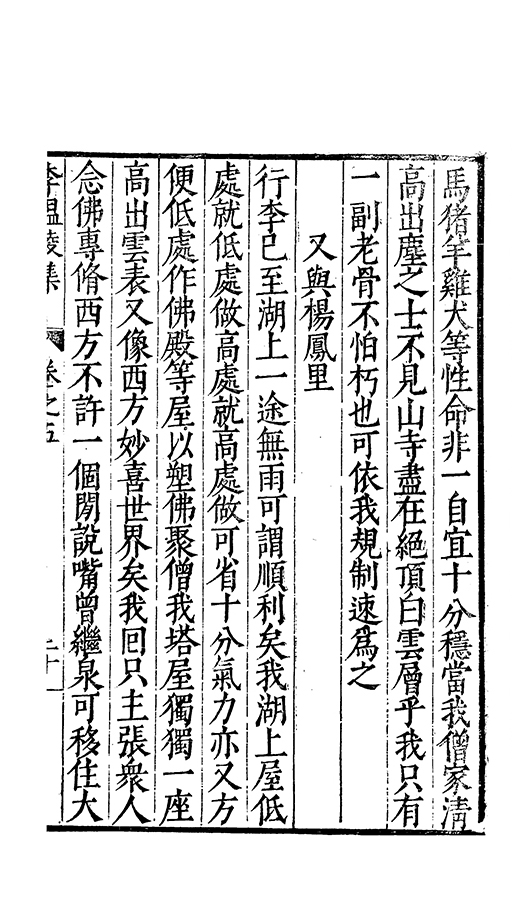 馬猪羊雞犬等性命非一自宜十分穩當我僧家清
高出塵之士不見山寺盡在絕頂白雲層乎我只有
一副老骨不怕朽也可依我規制速爲之
又與楊鳳里
行李已至湖上一途無雨可謂順利矣我湖上屋低
處就低處做高處就高處做可省十分氣力亦又方
便低處作佛殿等屋以塑佛聚僧我塔屋獨獨一座
高出雲表又像西方妙喜世界矣我回只主張衆人
念佛專脩西方不許一個閒說嘴曾繼泉可移住大
李溫陵集 卷之五 二十一